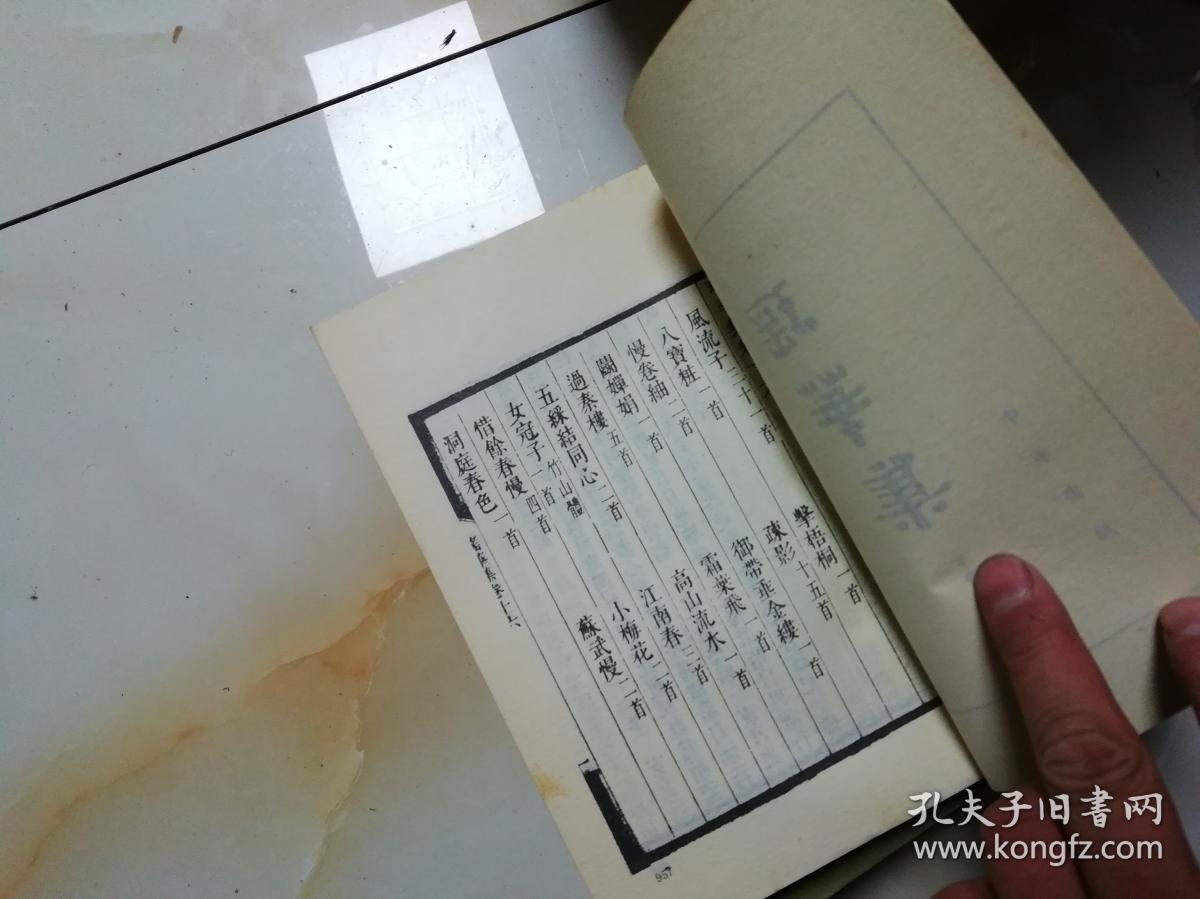 風流子二十一首
擊梧桐一首
八寶粧一首
疎影十五首
慢卷紬二首
御帶垂金縷一首
鬭嬋娟一首
霜葉飛一首
過秦樓五首
高山流水一首
五綵結同心二首
江南春三首
女冠子一首竹山體四首
小梅花二首
借餘春慢一首
蘇武慢二首
洞庭春色
957
孔夫子旧書网
www.kongfz.com